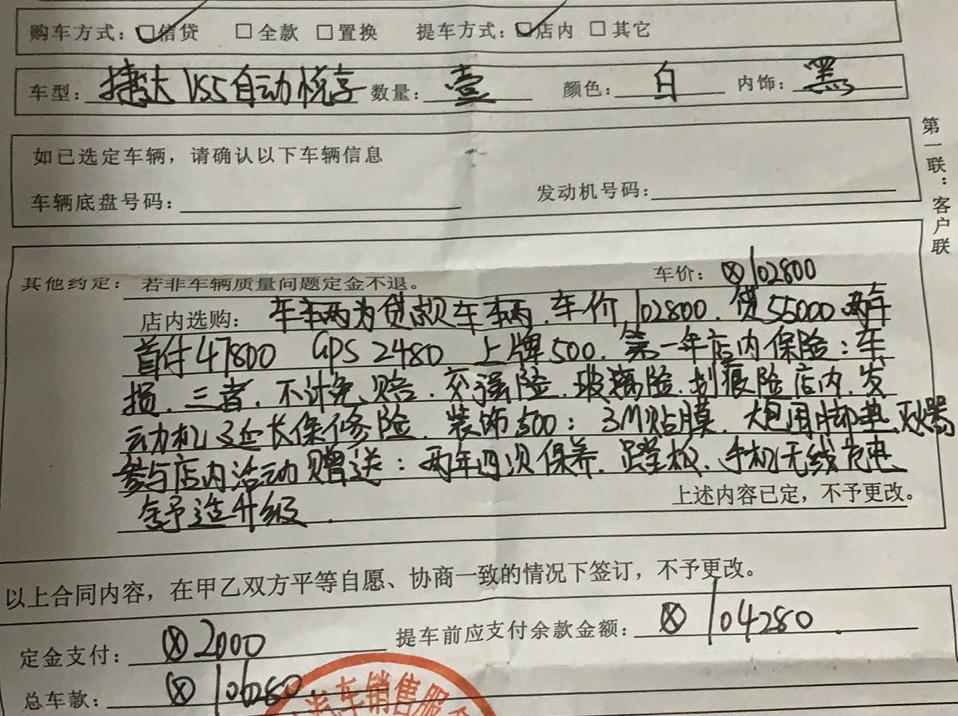 购车方式：☑信贷 □全款 □置换 提车方式：☑店内 □其它
车型：捷达VS5自动悦享 数量：壹 颜色：白 内饰：黑
如已选定车辆，请确认以下车辆信息
车辆底盘号码： 发动机号码：
第一联：客户联
其他约定：若非车辆质量问题定金不退。 车价：⊗102800
店内选购：车辆为贷款车辆．车价102800．贷55000两年
首付47800 GPS 2480 上牌500．第一年店内保险：车
损．三者．不计免赔．交强险．玻璃险．划痕险店内．发
动机延长保修险．装饰500：3M贴膜．大包围脚垫 灭火器
参与店内活动赠送：两年四次保养．手机无线充电
上述内容已定，不予更改。
升级．
以上合同内容，在甲乙双方平等自愿、协商一致的情况下签订，不予更改。
定金支付：⊗2000 提车前应支付余款金额：⊗104280．
总车款：⊗106280．
汽车销售服